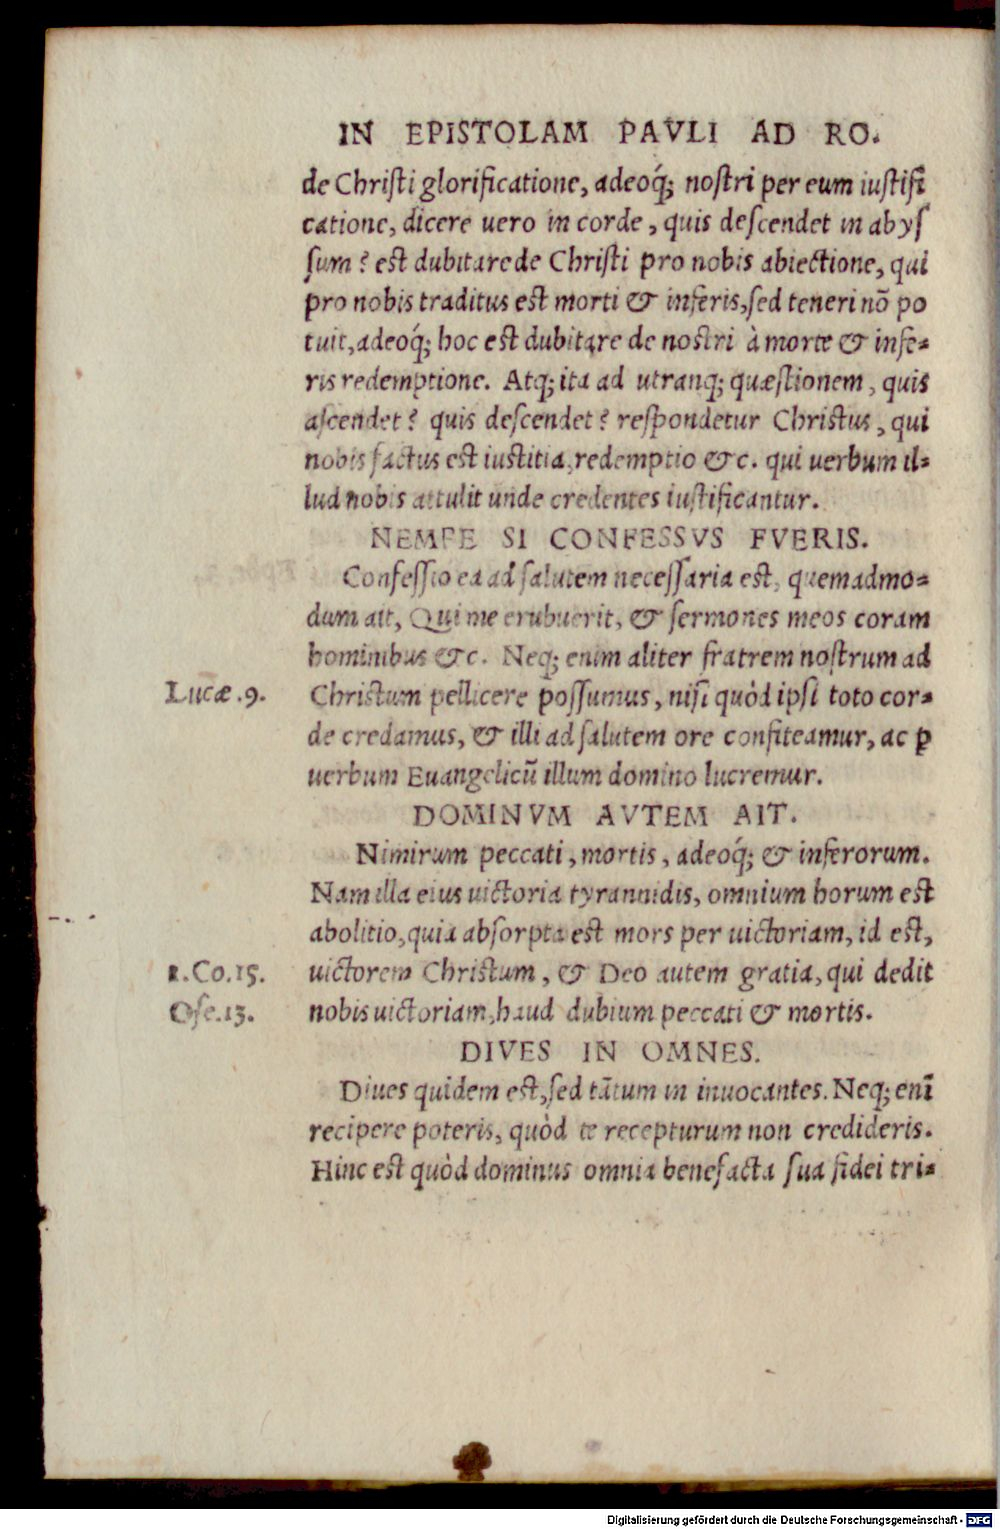 IN EPISTOLAM PAVLI AD RO.
de Chriſti glorificatione, adeoq́; noſtri per eum iuſtifi
catione, dicere uero in corde, quis deſcendet in abyſ
ſum? eſt dubitare de Chriſti pro nobis abiectione, qui
pro nobis traditus eſt morti & inferis, ſed teneri nō po
tuit, adeoq́; hoc eſt dubitare de noſtri à morte & infe=
ris redemptione. Atq; ita ad utranq; quæſtionem, quis
aſcendet? quis deſcendet? reſpondetur Chriſtus, qui
nobis factus eſt iuſtitia, redemptio &c. qui uerbum il=
lud nobis attulit unde credentes iuſtificantur.
NEMPE SI CONFESSVS FVERIS.
Confeſſio ea ad ſalutem neceſſaria eſt, quemadmo=
dum ait, Qui me erubuerit, & ſermones meos coram
hominibus &c. Neq; enim aliter fratrem noſtrum ad
Lucæ.9.
Chriſtum pellicere poſſumus, niſi quòd ipſi toto cor=
de credamus, & illi ad ſalutem ore confiteamur, ac ꝑ
uerbum Euangelicū illum domino lucremur.
DOMINVM AVTEM AIT.
Nimirum peccati, mortis, adeoq́; & inferorum.
Nam illa eius uictoria tyrannidis, omnium horum eſt
abolitio, quia abſorpta eſt mors per uictoriam, id eſt,
1.Co.15.
uictorem Chriſtum, & Deo autem gratia, qui dedit
Oſe.13.
nobis uictoriam, haud dubium peccati & mortis.
DIVES IN OMNES.
Diues quidem eſt, ſed tātum in inuocantes. Neq; enī
recipere poteris, quòd te recepturum non credideris.
Hinc eſt quòd dominus omnia benefacta ſua fidei tri=
Digitalisierung gefördert durch die Deutsche Forschungsgemeinschaft - DFG